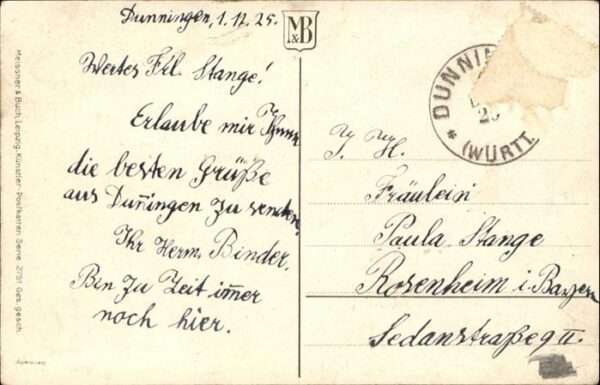 Dunningen, 1.12.25.
M&B
Wertes Frl. Stange!
Erlaube mir Ihnen
die besten Grüße
aus Dun̄ingen zu senden,
Ihr Herm. Binder.
Bin zu Zeit im̄er
noch hier.
DUNNIN
25
* (WÜRTT.
I. H.
Fräulein
Paula Stange
Rosenheim i. Bayern
Sedanstraße 9 II.
Meissner & Buch, Leipzig, Künstler-Postkarten Serie 2791 Ges. gesch.